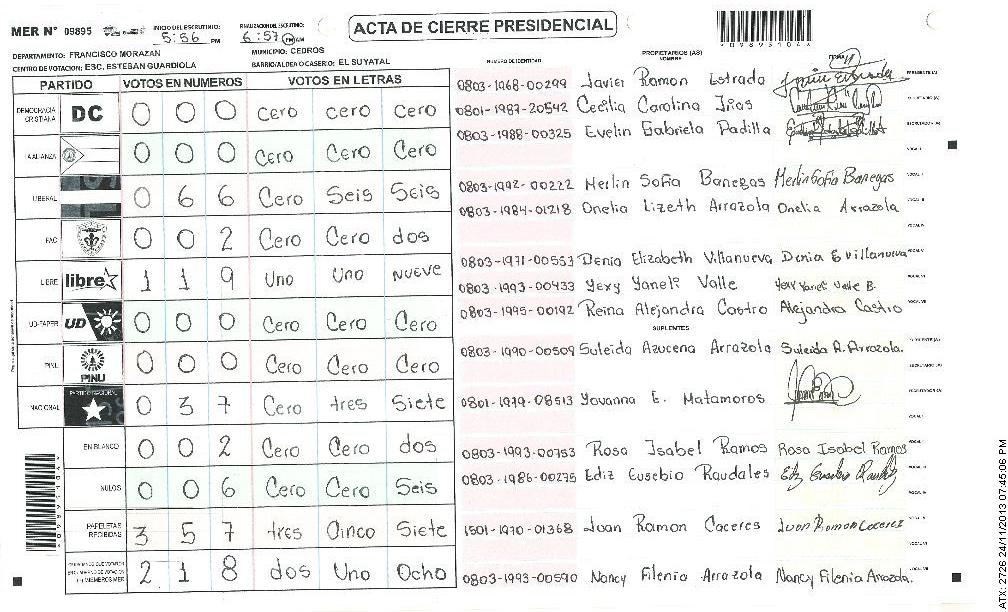 MER Nº 09895 INICIO DEL ESCRUTINIO: 5:56 PM FINALIZACION DEL ESCRUTINIO: 6:57 PM AM ACTA DE CIERRE PRESIDENCIAL
DEPARTAMENTO: FRANCISCO MORAZAN MUNICIPIO: CEDROS
CENTRO DE VOTACION: ESC. ESTEBAN GUARDIOLA BARRIO/ALDEA O CASERIO: EL SUYATAL
NUMERO DE IDENTIDAD PROPIETARIOS (AS) NOMBRE FIRMA
PARTIDO VOTOS EN NUMEROS VOTOS EN LETRAS
DEMOCRACIA CRISTIANA DC 0 0 0 cero cero cero
LA ALIANZA 0 0 0 Cero Cero Cero
LIBERAL 0 6 6 Cero Seis Seis
PAC 0 0 2 Cero Cero dos
LIBRE libre 1 1 9 Uno Uno nueve
UD-FAPER UD 0 0 0 Cero Cero Cero
PINU PINU 0 0 0 Cero Cero Cero
NACIONAL PARTIDO NACIONAL 0 3 7 Cero tres Siete
EN BLANCO 0 0 2 Cero Cero dos
NULOS 0 0 6 Cero Cero Seis
PAPELETAS RECIBIDAS 3 5 7 tres Cinco Siete
2 1 8 dos Uno Ocho
0803-1968-00299 Javier Ramon Estrada PRESIDENTE (A)
0801-1987-20542 Cecilia Carolina SECRETARIO (A)
0803-1988-00325 Evelin Gabriela Padilla ESCRUTADOR (A)
VOCAL I
0803-1992-00222 Merlin Sofia Banegas Merlin Sofia Banegas
0803-1984-01218 Onelia Lizeth Arrazola Onelia Arrazola
0803-1971-00553 Denia Elizabeth Villanueva Denia E Villanueva
0803-1993-00433 Yexy Yaneli Valle Valle B.
0803-1995-00192 Reina Alejandra Castro Alejandra Castro
SUPLENTES
0803-1990-00509 Suleida Azucena Arrazola Suleida A. Arrazola.
0801-1979-08513 Yovanna E. Matamoros
0803-1993-00753 Rosa Isabel Ramos Rosa Isabel Ramos
0803-1986-00275 Ediz Eusebio Raudales
1501-1970-01368 Juan Ramon Caceres Juan Ramon Caceres
0803-1993-00590 Nancy Filenia Arrazola Nancy Filenia Arrazola.
ATX: 2726 24/11/2013 07:45:06 PM